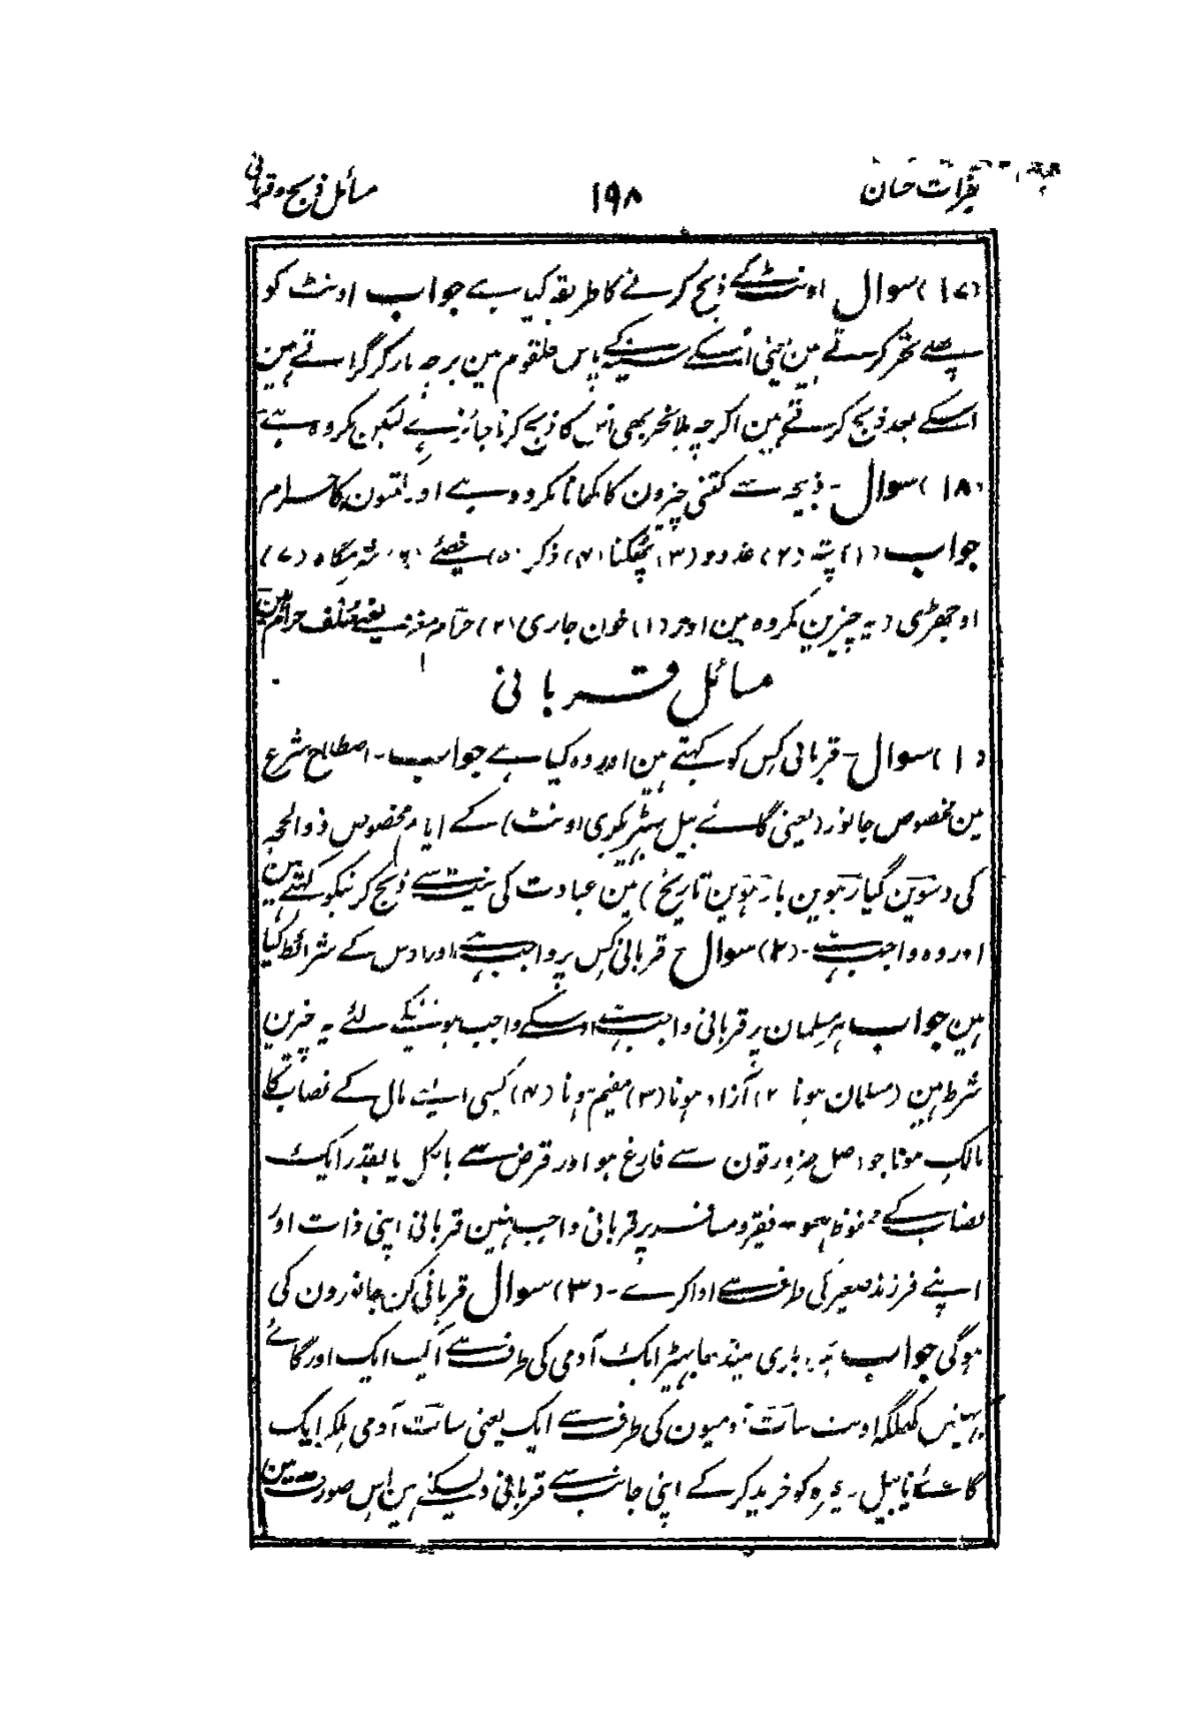 مسائل ذبح و قربانی ۱۹۸
(۱۷) سوال اونٹ کے ذبح کرنے کا طریقہ کیا ہے جواب اونٹ کو
پہلے نحر کرتے ہین یعنی اُسکے سینہ کے پاس حلقوم مین برچھہ مار کر گراتے ہین
اسکے بعد ذبح کرتے ہین اگرچہ بلا نحر بھی اُس کا ذبح کرنا جائز ہے لیکن مکروہ ہے
(۱۸) سوال - ذبیحہ سے کتنی چیزون کا کھانا مکروہ ہے اور کتنون کا حرام
جواب (۱) پتّہ (۲) غدود (۳) پھکنا (۴) ذکر (۵) خصیے (۶) شرمگاہ (۷)
اوجھڑی یہ چیزین مکروہ ہین اور (۱) خون جاری (۲) حرام مغز حرام ہین
مسائل قربانی
(۱) سوال - قربانی کِس کو کہتے ہین اور وہ کیا ہے جواب - اصطلاح شرع
مین مخصوص جانور (یعنی گائے بیل بھیڑ بکری اونٹ) کے ایام مخصوص ذوالحجہ
کی دسوَین گیارہوین بارہوَین تاریخ) مین عبادت کی نیت سے ذبح کرنیکو کہتے ہین
اور وہ واجب ہے - (۲) سوال قربانی کِس پر واجب ہے اور اوس کے شرائط کیا
ہین جواب ہر مسلمان پر قربانی واجب ہے اوسکے واجب ہونیکے لئے یہ چیزین
شرط ہین (مسلمان ہونا ۲) آزاد ہونا (۳) مقیم ہونا (۴) کسی ایسے مال کے نصاب کا
مالک ہونا جو اصل ضرورتون سے فارغ ہو اور قرض سے بالکل یا بقدر ایک
نصاب کے محفوظ ہو - فقیر و مسافر پر قربانی واجب نہین قربانی اپنی ذات اور
اپنے فرزند صغیر کی طرف سے ادا کرے - (۳) سوال قربانی کن جانورون کی
ہوگی جواب بکری مینڈھا بھیڑ ایک آدمی کی طرف سے ایک ایک اور گائے
بھینس اونٹ سات آدمیون کی طرف سے ایک یعنی سات آدمی ملکر ایک
گائے یا بیل وغیرہ کو خرید کر کے اپنی جانب سے قربانی دیسکتے ہین اِس صورت مین